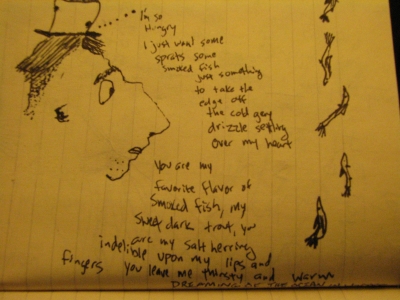 I'm so
Hungry
I just want some
sprats some
smoked fish
just something
to take the
edge off
the cold grey
drizzle settling
over my heart
You are my
favorite flavor of
smoked fish, my
sweet dark trout, you
are my salt herring
indelible upon my lips and
fingers you leave me thirsty and warm
DREAMING OF THE OCEAN